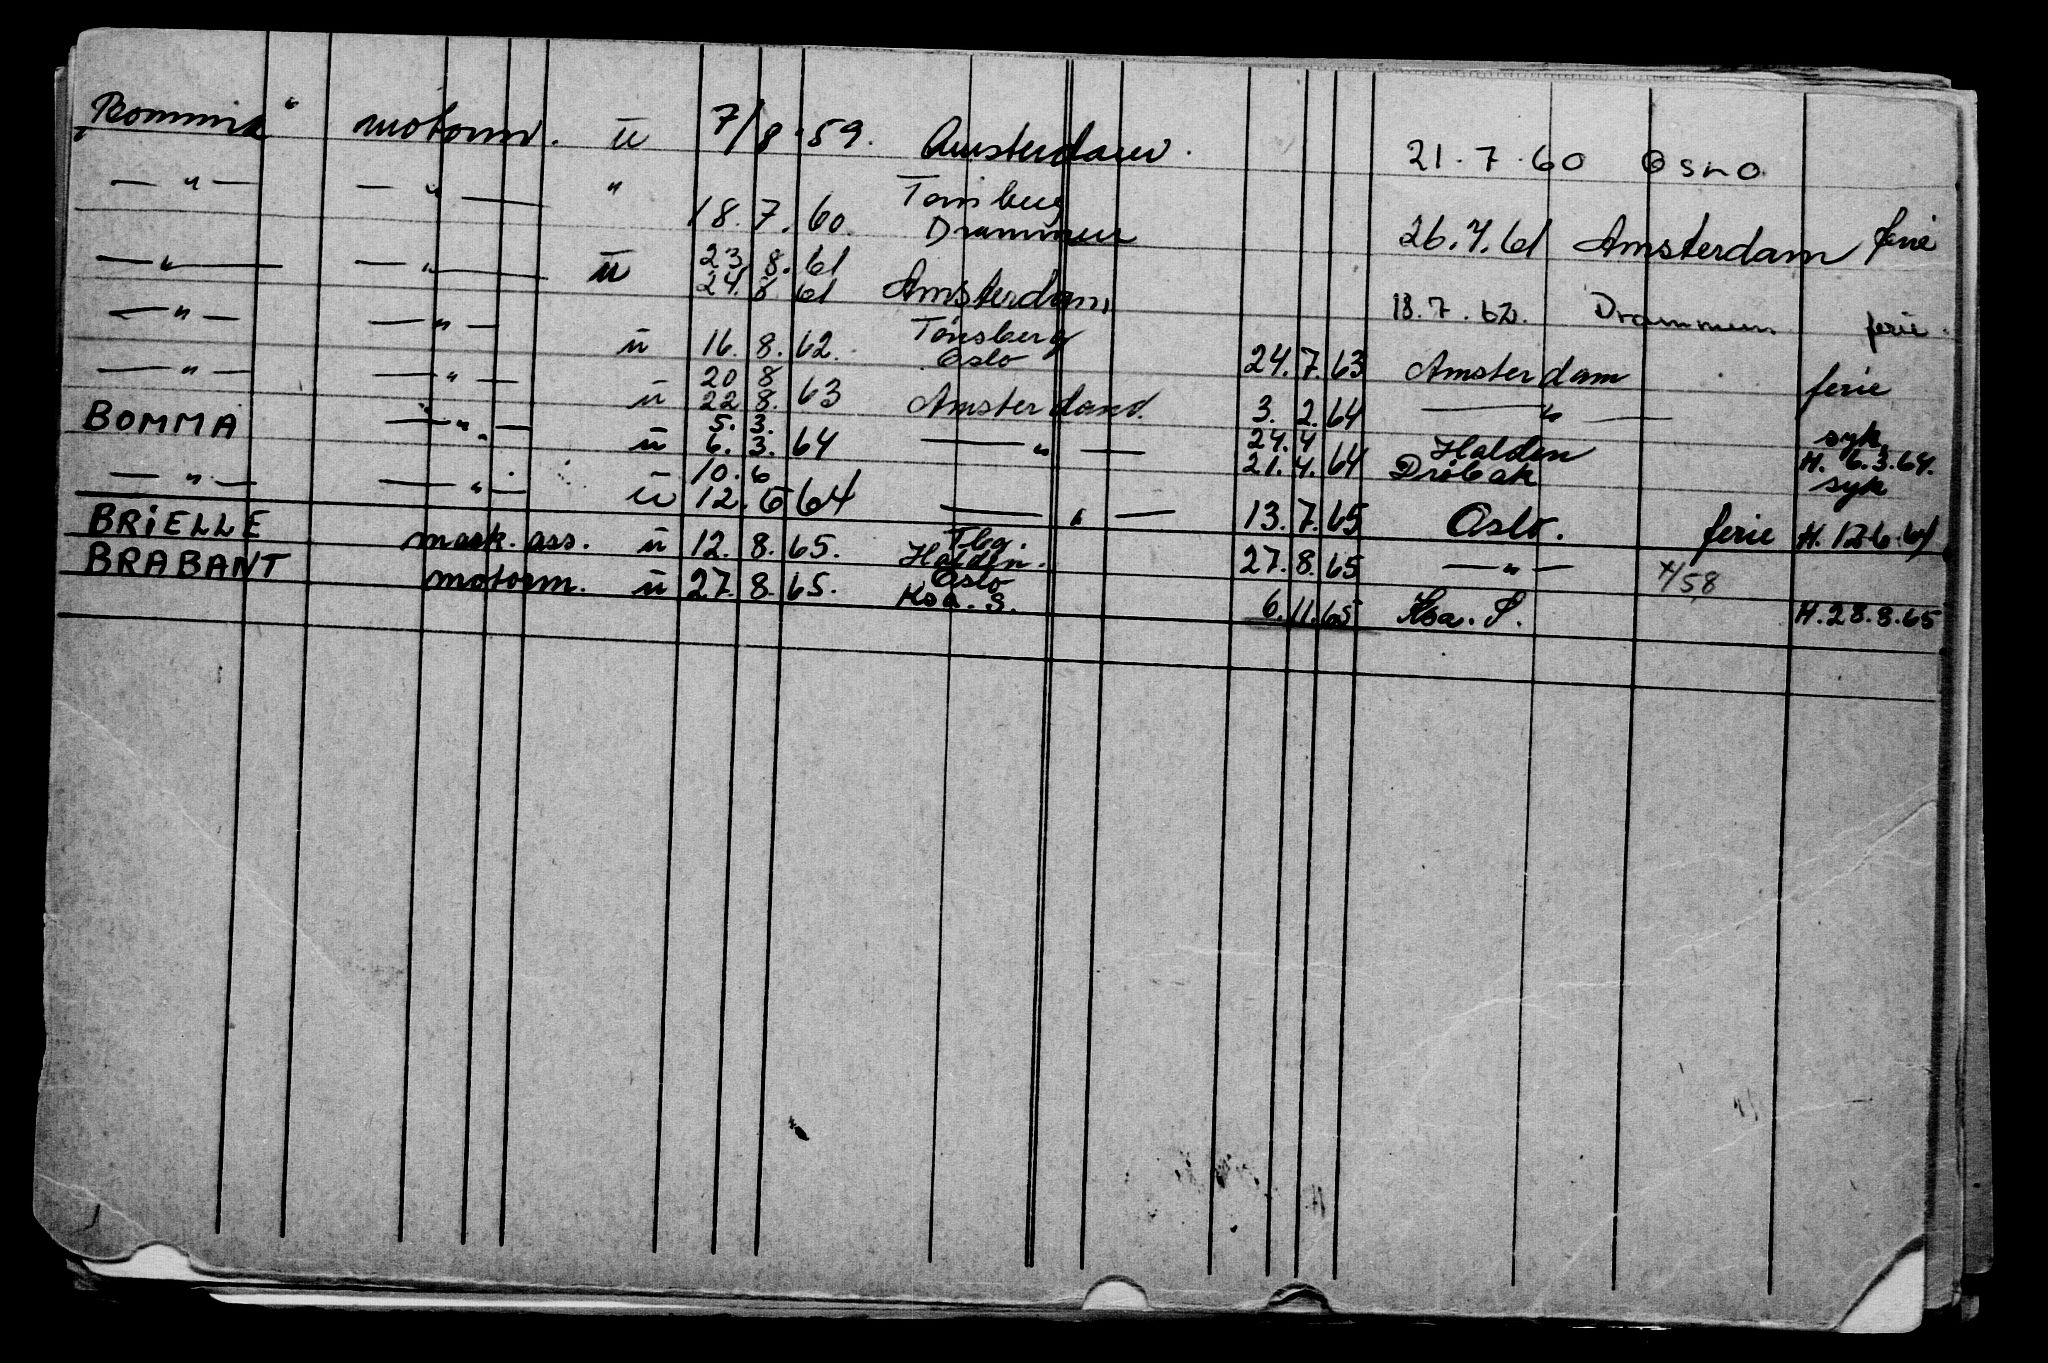 "Bomma" motorm. ū 7/8.59. Amsterdam. 21.7.60 OSLO
— " — — " — " 18.7.60. Tönsberg Drammen 26.7.61 Amsterdam ferie
— " — — " — ū 23.8.61 24.8.61 Amsterdam 18.7.62. Drammen ferie.
— " — — " — ū 16.8.62. Tönsberg Oslo 24.7.63 Amsterdam ferie
— " — — " — ū 20 8 22 8. 63 Amsterdam. 3. 2. 64 — " — syk
BOMMA — " — ū 5. 3. 6. 3. 64 — " — 24. 4 21. 4. 64 Halden Dröbak H. 6.3.64. syk
— " — — " — ū 10. 6 12. 6 64 — " — 13. 7. 65 Oslo. ferie H. 12.6.64
BRiELLE mask. ass. ū 12. 8. 65. Tbg. Halden. 27. 8. 65 — " — x/58
BRABANT motorm. ū 27. 8. 65. Oslo Koa. S. 6. 11. 65 Koa. S. H. 28.8.65